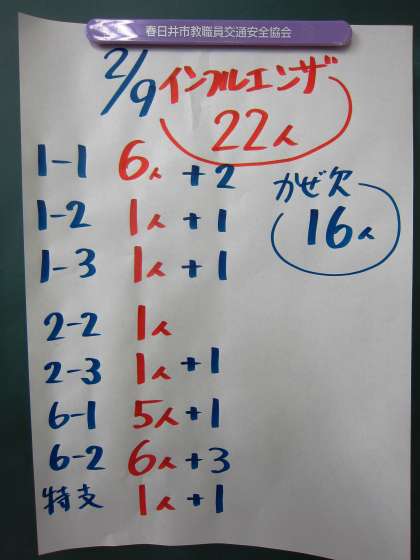 春日井市教職員交通安全協会
2/9 インフルエンザ
22人
1-1 6人 +2
かぜ欠
16人
1-2 1人 +1
1-3 1人 +1
2-2 1人
2-3 1人 +1
6-1 5人 +1
6-2 6人 +3
特支 1人 +1